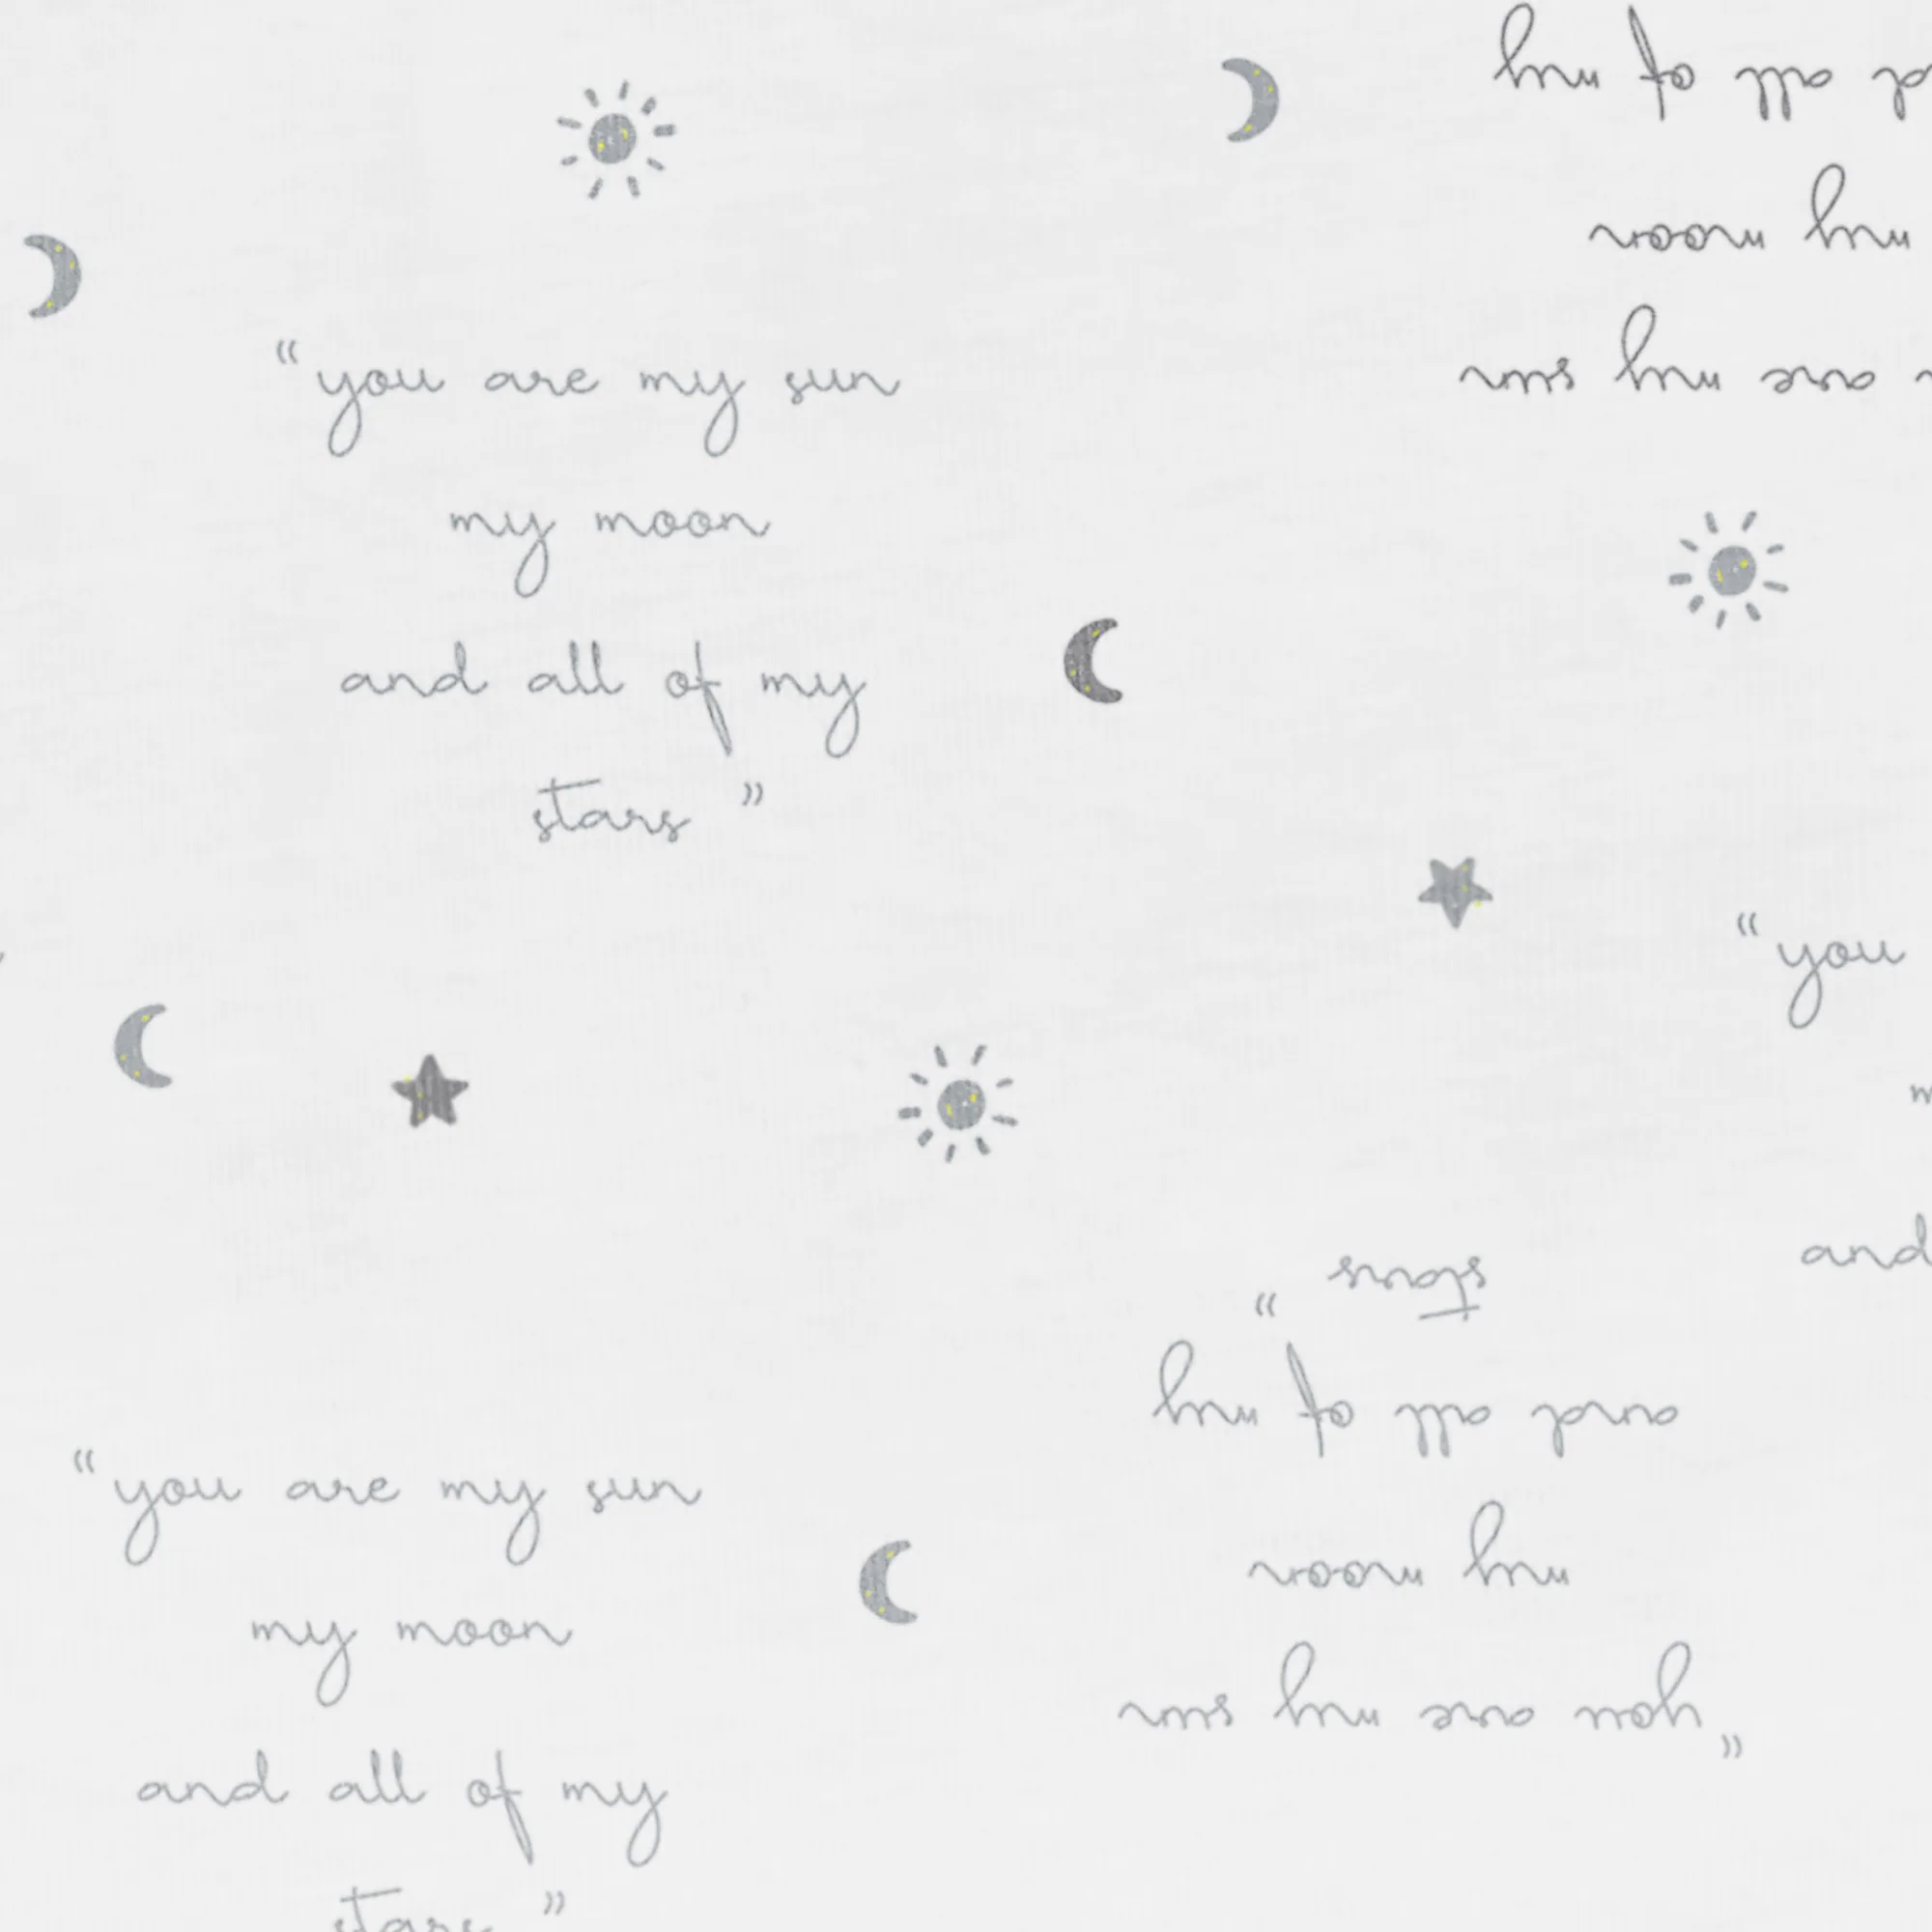 “you are my sun
my moon
and all of my
stars”
of my
my moon
are my sun
“you
and
stars”
and all of my
my moon
“you are my sun
“you are my sun
my moon
and all of my
stars”